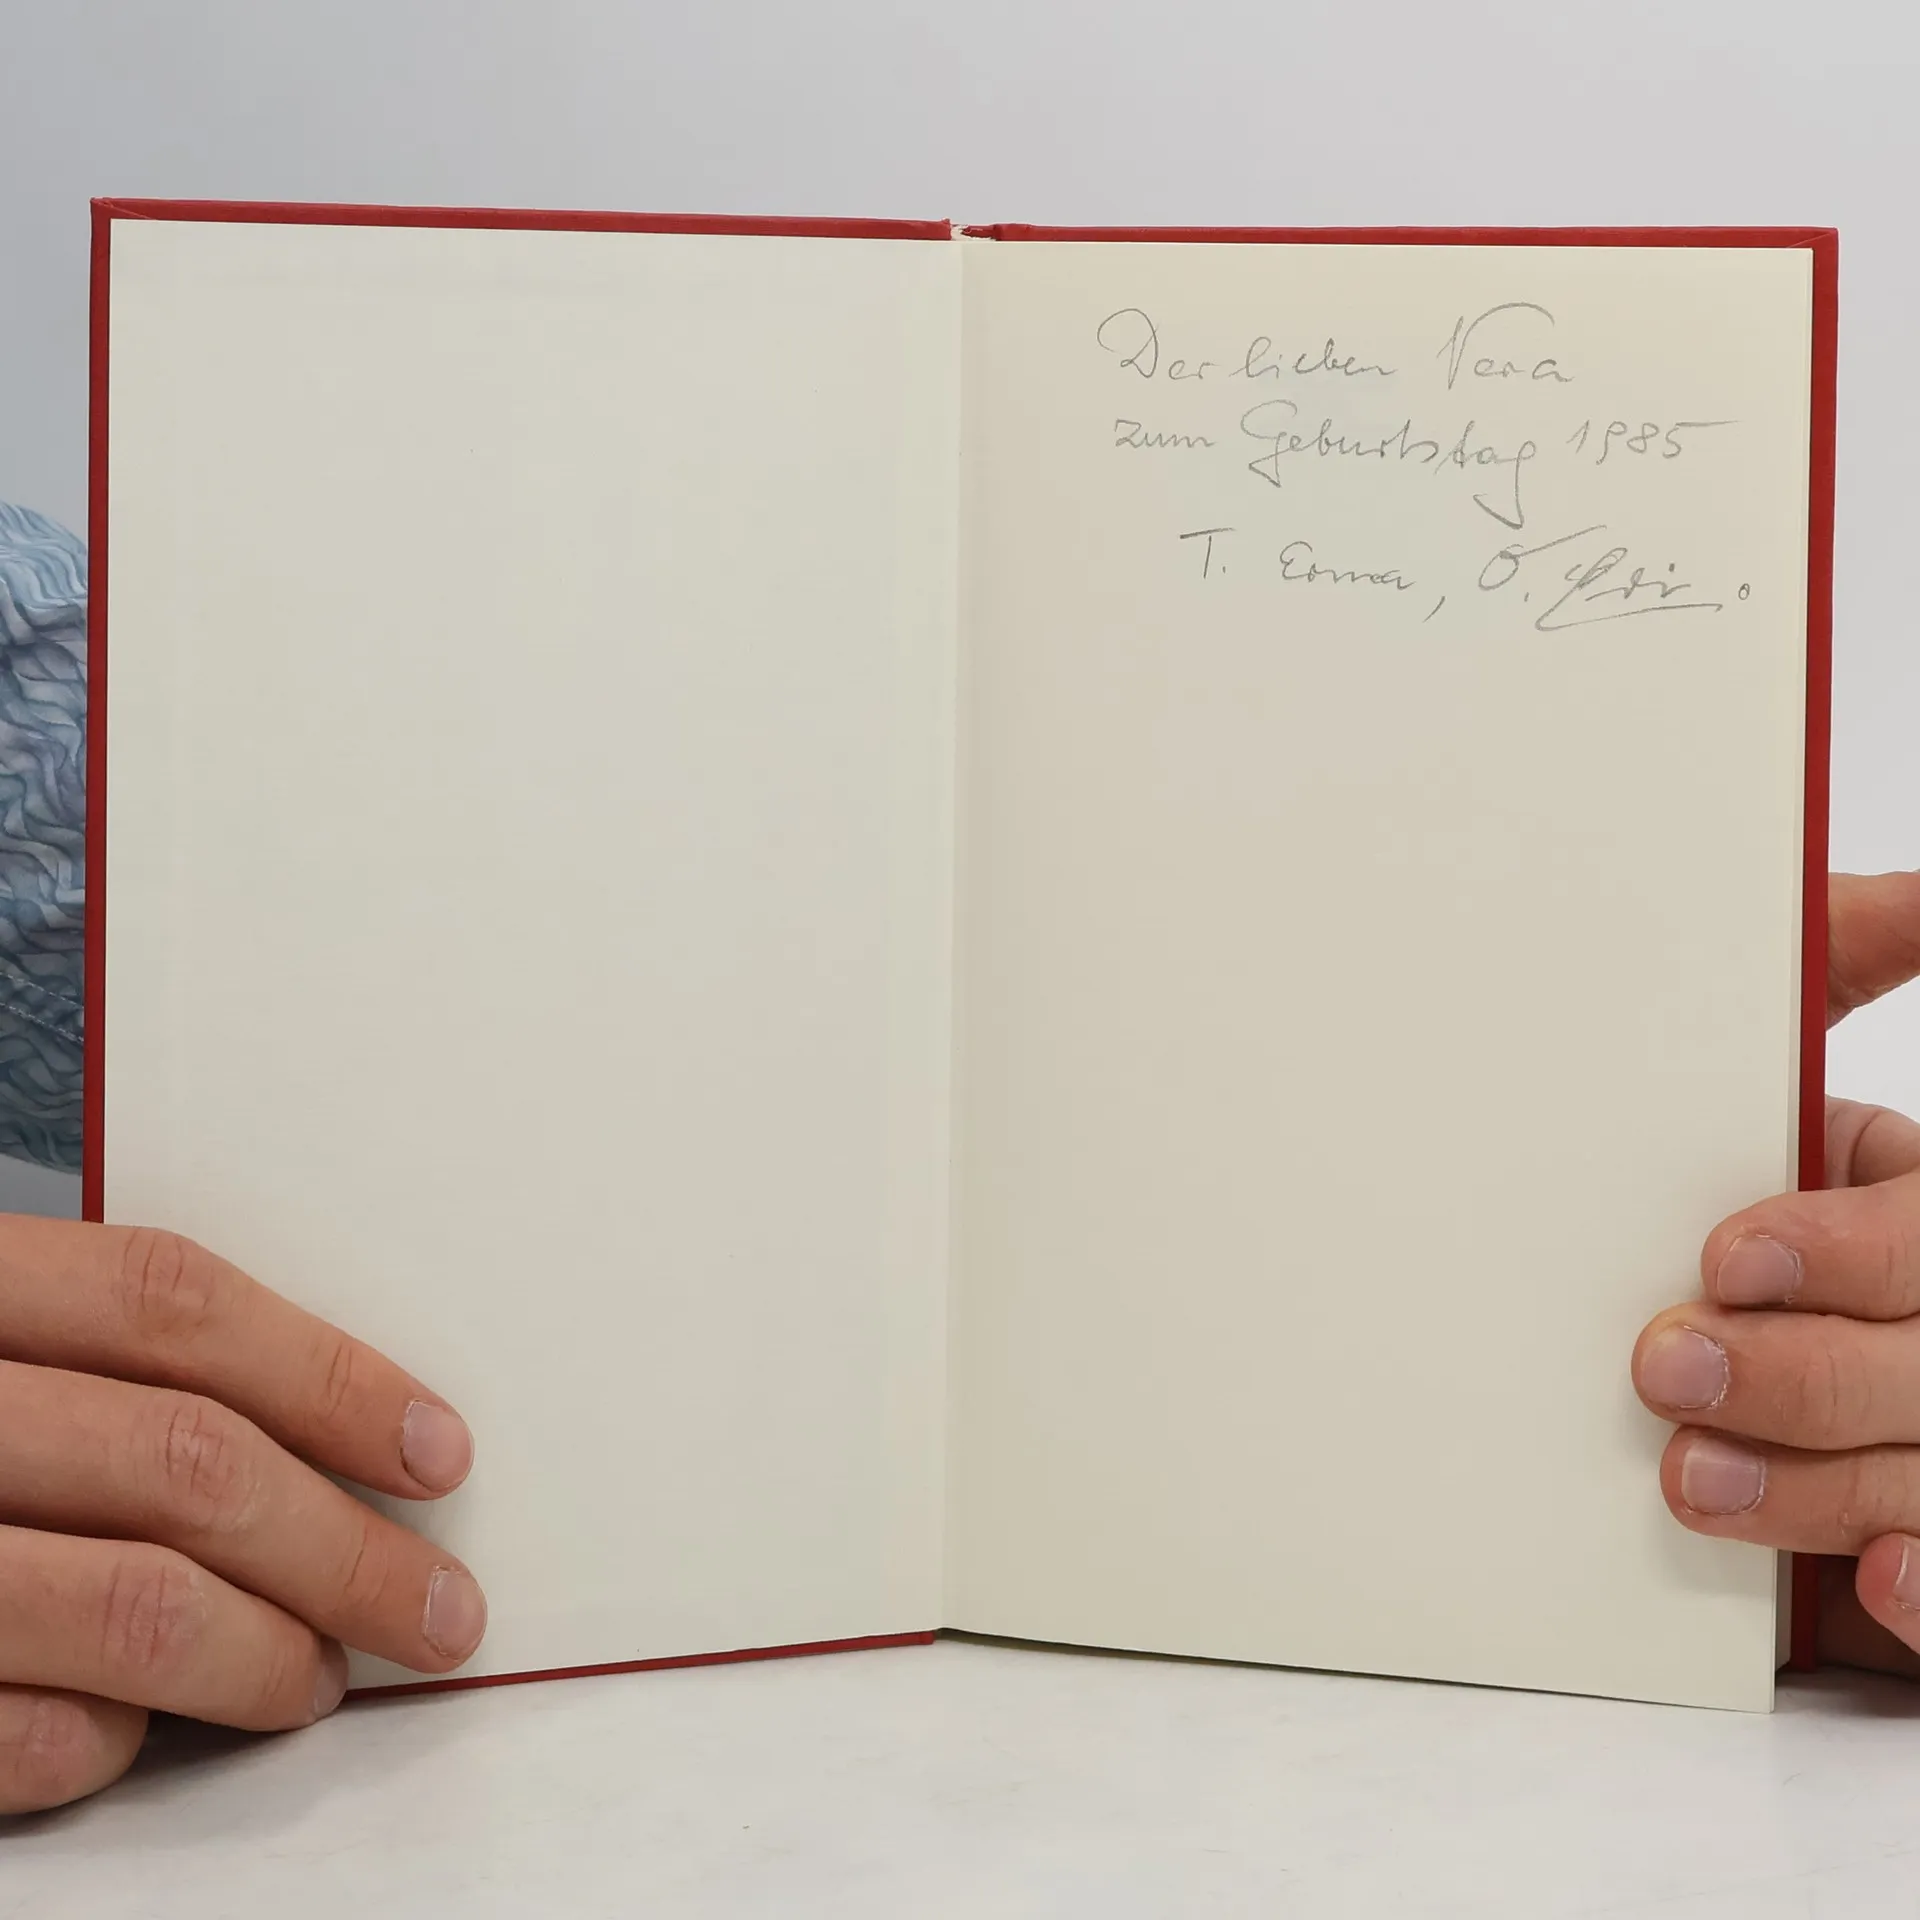 Der lieben Vera
zum Geburtstag 1985
T. Erna, O.